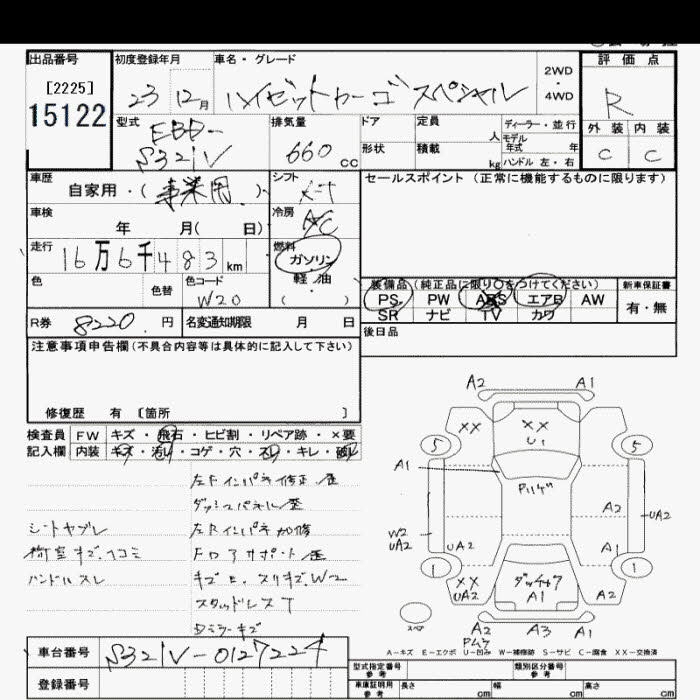 出品番号
[2225]
15122
初度登録年月
23 12月
車名・グレード
ハイゼットカーゴ スペシャル
2WD
4WD
評価点
R
外装 内装
C C
型式
EBD-
S321V
排気量
660 cc
ドア
形状
定員
人
積載
kg
ディーラー・並行
モデル
年式 年
ハンドル 左・右
車歴
自家用・(事業用)
シフト
車検
年 月( 日)
冷房
AC
走行
16万6千483km
燃料
ガソリン
軽油
( )
色
色替
色コード
W20
R券 8220円
名変通知期限 月 日
セールスポイント (正常に機能するものに限ります)
装備品 (純正品に限り○をつけてください)
PS PW ABS エアB AW
SR ナビ TV カワ
新車保証書
有・無
後日品
注意事項申告欄(不具合内容等は具体的に記入して下さい)
修復歴 有 〔箇所 〕
検査員
記入欄
FW キズ・飛石・ヒビ割・リペア跡・×要
内装 キズ・汚れ・コゲ・穴・スレ・キレ・破レ
左Fインパネ修正
シートヤブレ
左Fインパネ加修
ハンドルスレ
キズ
W2
スタッドレスT
キズ
A2 A1
XX XX
U1
5 5
A1
A2
UA2
W2
UA2
UA2
A1
1 1
XX
UA2
A1
A2
スペア
A2 A3 A1
A-キズ E-エクボ U-凹み W-補修跡 S-サビ C-腐食 XX-交換済
車台番号
S321V-0127224
登録番号
型式指定番号
参考
類別区分番号
参考
車庫証明用
参考
長さ cm
幅 cm
高さ cm